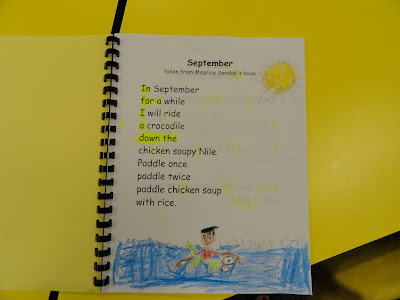 September
taken from Maurice Sendak's book
In September
for a while
I will ride
a crocodile
down the
chicken soupy Nile.
Paddle once
paddle twice
paddle chicken soup
with rice.